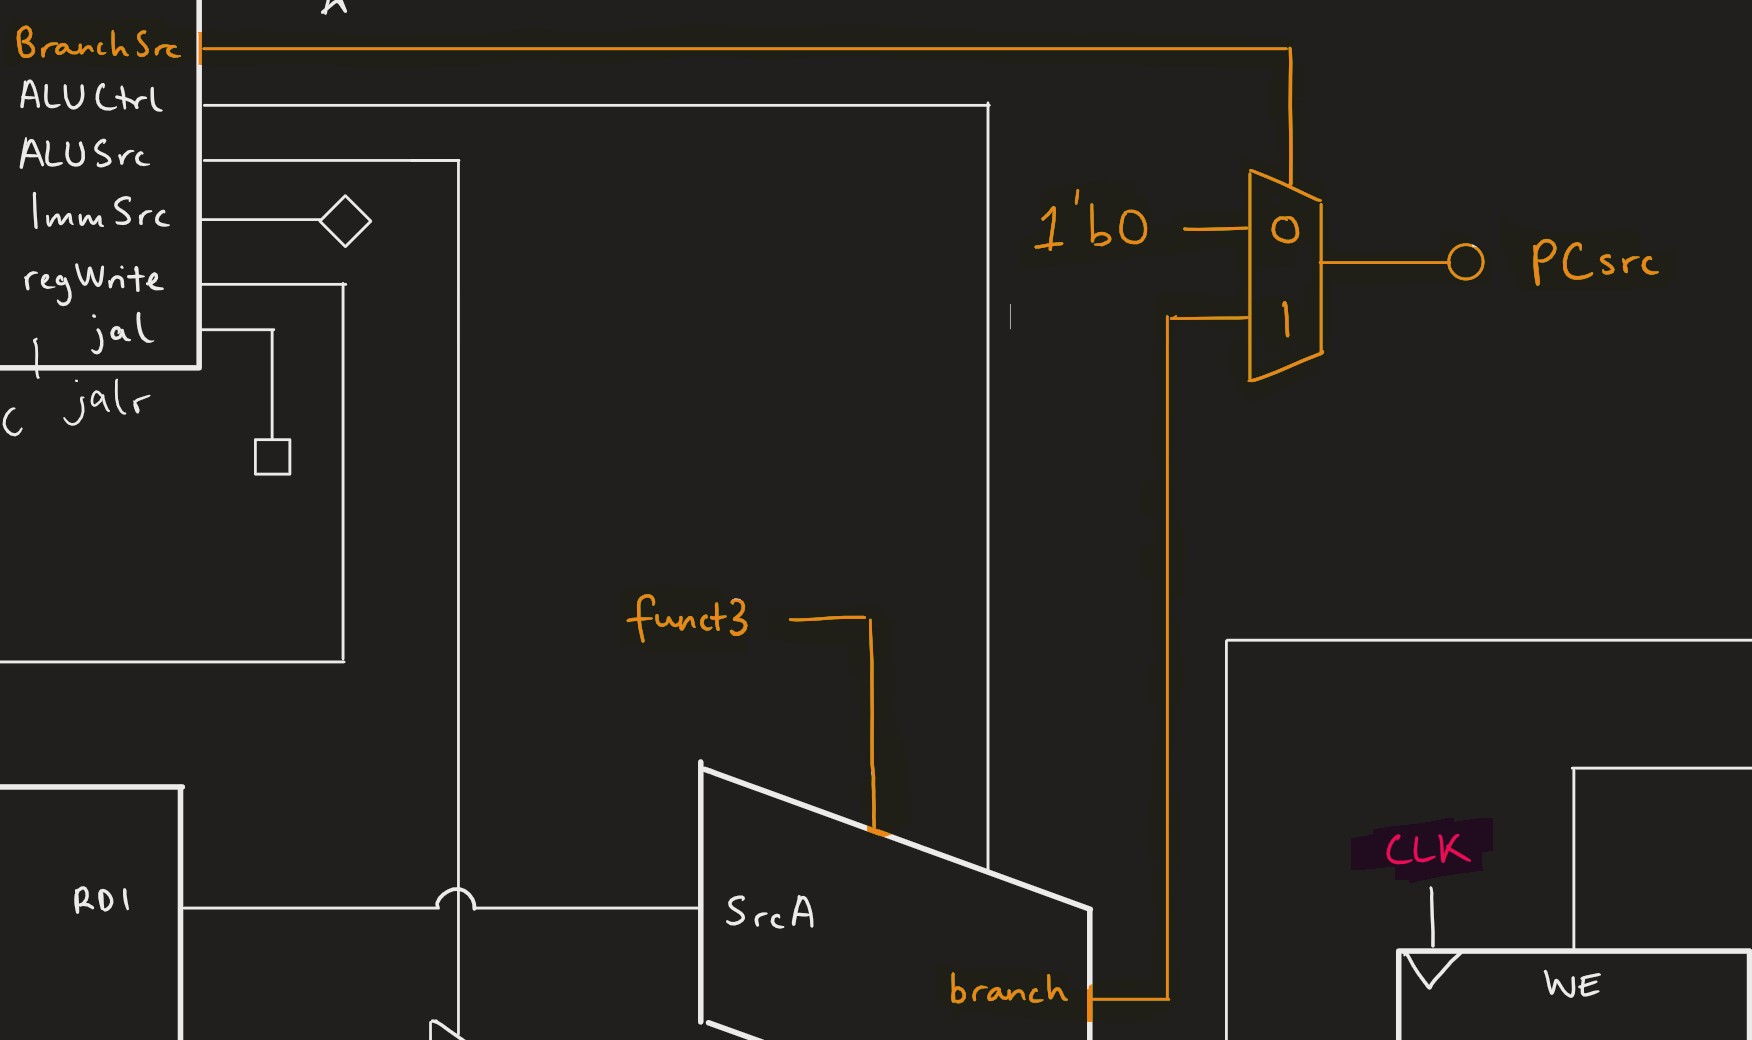 BranchSrc
ALUCtrl
ALUSrc
ImmSrc
regWrite
jal
jalr
C
1'b0
0
1
PCsrc
funct3
SrcA
branch
RD1
CLK
WE